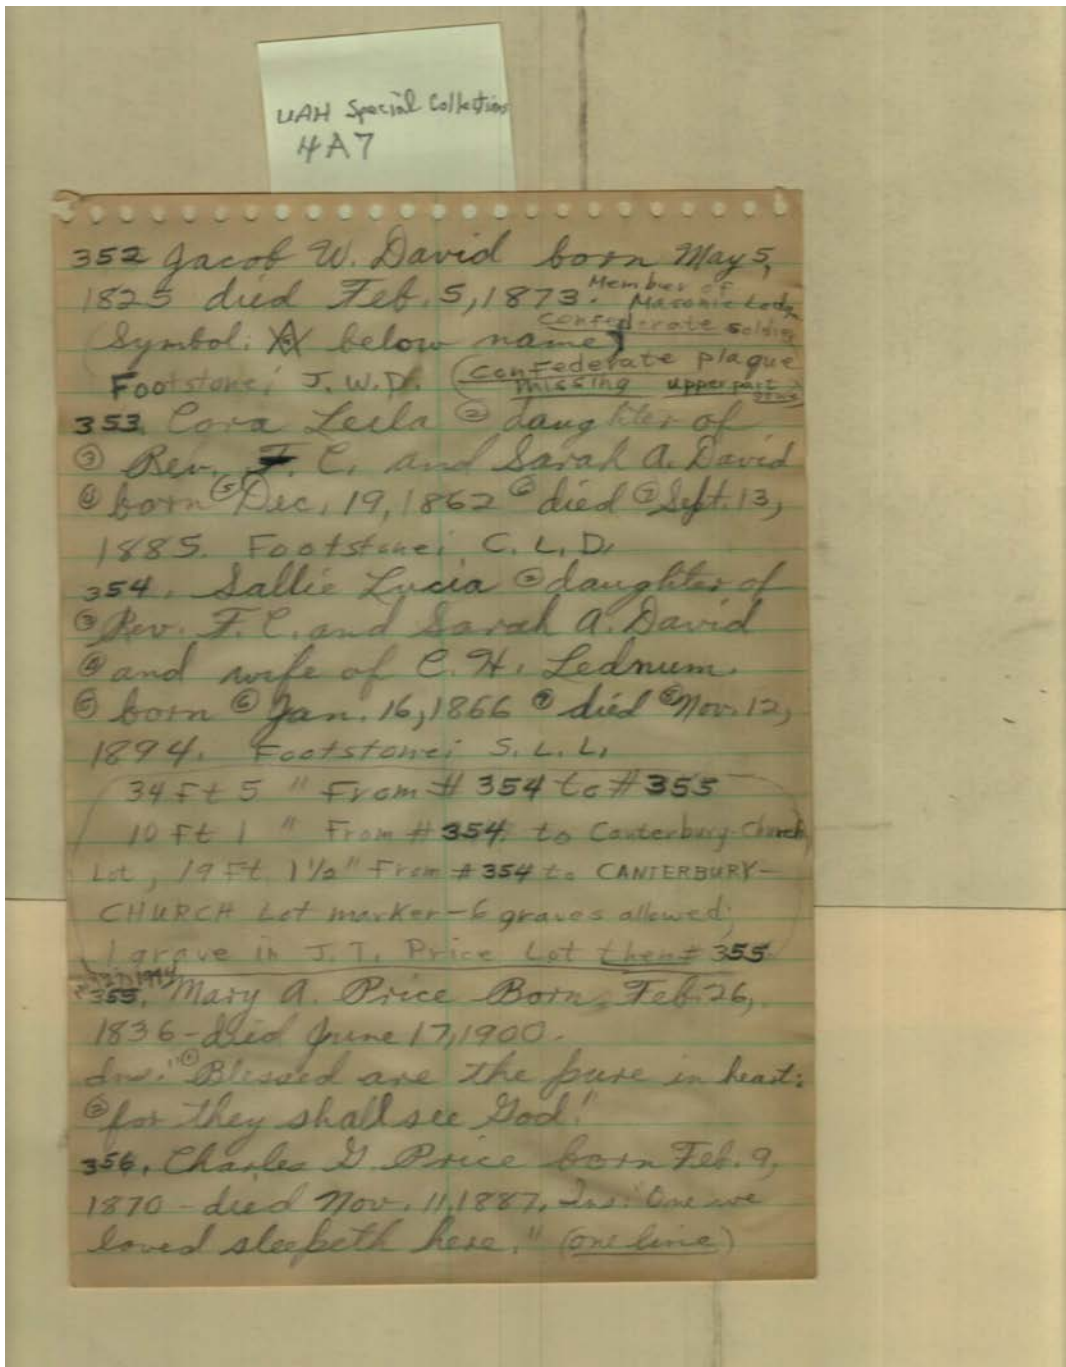 UAH Special Collections
4A7
352 Jacob W. David born May 5,
1825 died Feb. 5, 1873. Member of
Masonic Lodge
Confederate soldier
(Symbol: below name)
(Confederate plaque
Footstone: J. W. D. missing upper part
353. Cora Leila ② daughter of
③ Rev. F. C. and Sarah A. David
④ born ⑤ Dec. 19, 1862 ⑥ died ⑦ Sept. 13,
1885. Footstone: C. L. D.
354. Sallie Lucia ② daughter of
③ Rev. F. C. and Sarah A. David
④ and wife of C. H. Lednum.
⑤ born ⑥ Jan. 16, 1866 ⑦ died ⑧ Nov. 12,
1894. Footstone: S. L. L.
34 Ft 5 " From # 354 to # 355
10 Ft 1 " From # 354 to Canterbury Church
Lot, 19 Ft 1 1/2" From # 354 to CANTERBURY-
CHURCH Lot marker - 6 graves allowed;
1 grave in J. T. Price Lot then # 355
1994
355. Mary A. Price Born Feb. 26,
1836 - died June 17, 1900.
Ins. "① Blessed are the pure in heart:
② for they shall see God."
356. Charles G Price born Feb. 9,
1870 - died Nov. 11, 1887. Ins: "One we
loved sleepeth here." (one line)